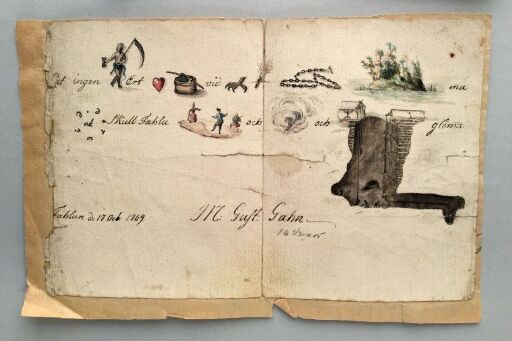 Låt ingen Ert vid ma
at Skull Fahlu och och glöma
Fahlun d. 17 Oct 1769 M Gust. Gahn
16 1/2 år